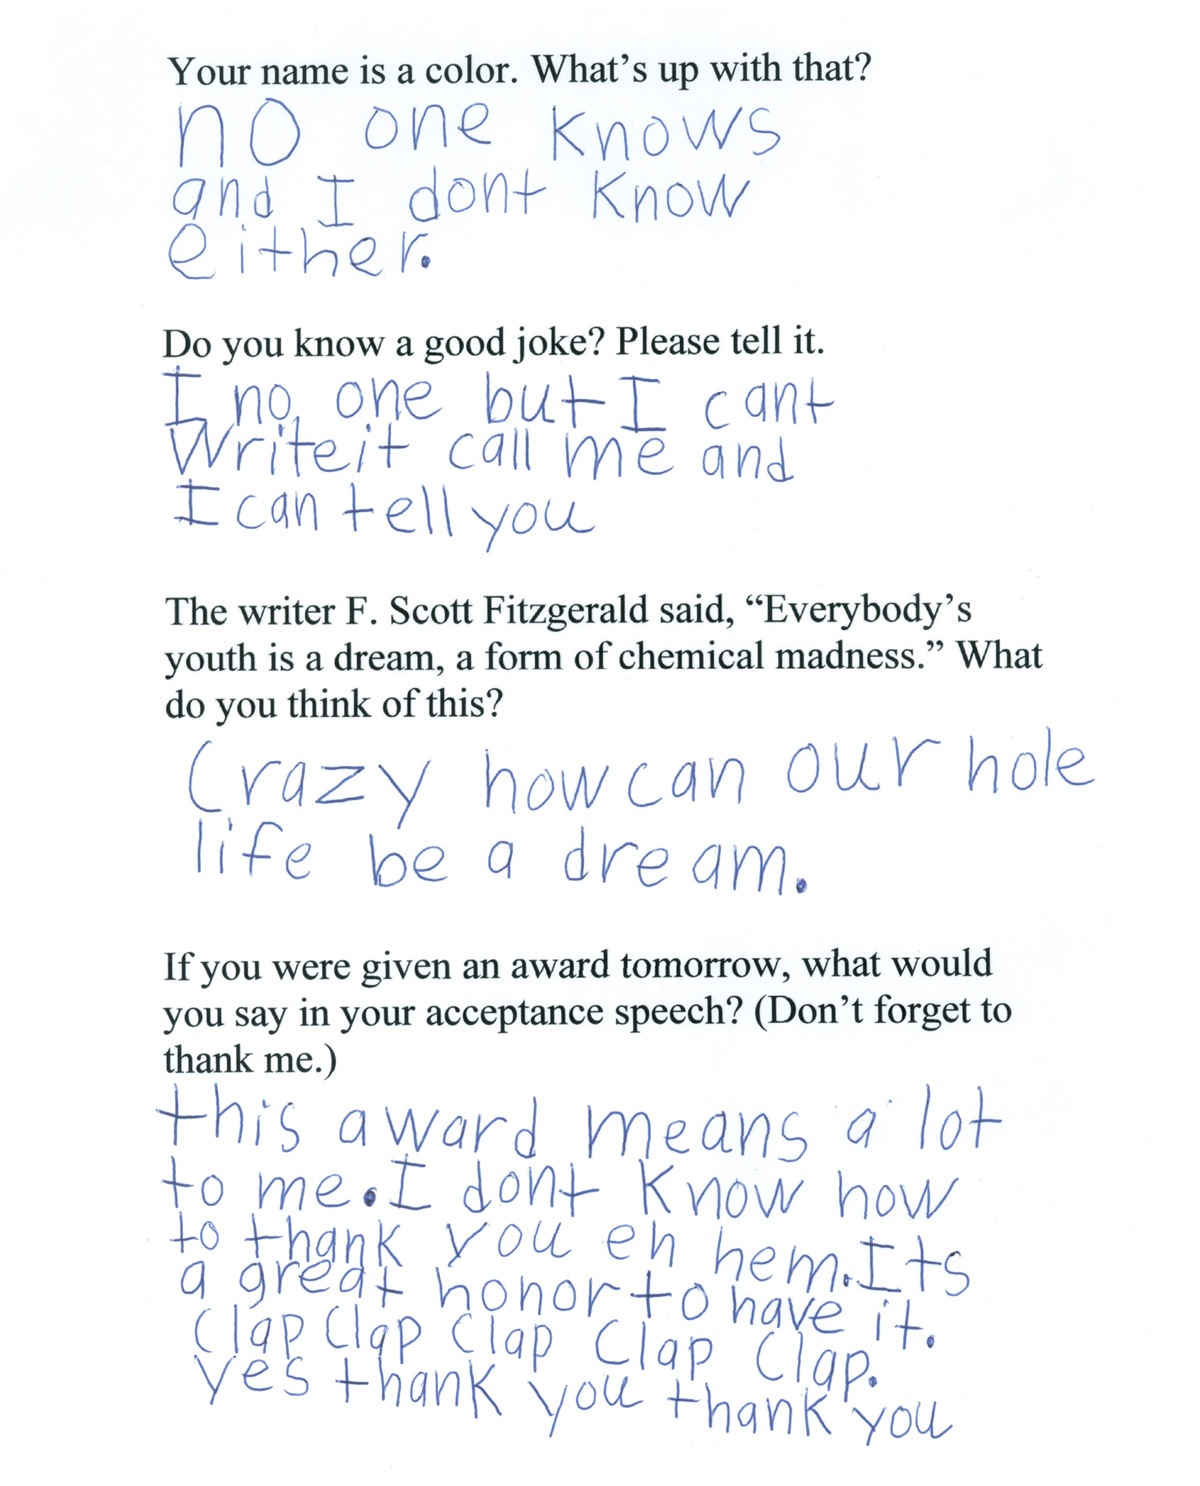 Your name is a color. What's up with that?
no one knows
and I dont know
either.
Do you know a good joke? Please tell it.
I no one but I cant
Write it call me and
I can tell you
The writer F. Scott Fitzgerald said, “Everybody’s
youth is a dream, a form of chemical madness.” What
do you think of this?
Crazy how can our hole
life be a dream.
If you were given an award tomorrow, what would
you say in your acceptance speech? (Don’t forget to
thank me.)
this award means a lot
to me. I dont know how
to thank you eh hem. Its
a great honor to have it.
Clap Clap Clap Clap Clap.
yes thank you thank you